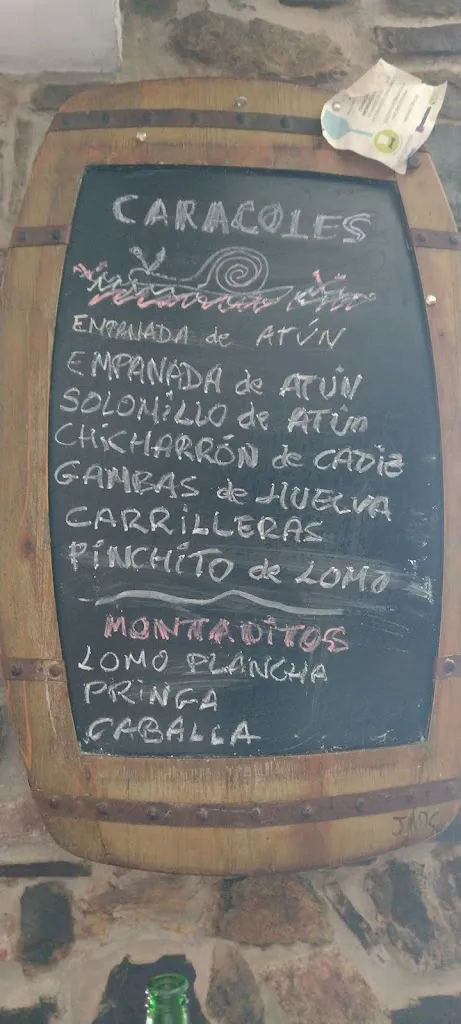 CARACOLES
EMPANADA de ATÚN
EMPANADA de ATÚN
SOLOMILLO de ATÚN
CHICHARRÓN de CADIZ
GAMBAS de HUELVA
CARRILLERAS
PINCHITO de LOMO
MONTADITOS
LOMO PLANCHA
PRINGA
CABALLA
JADG